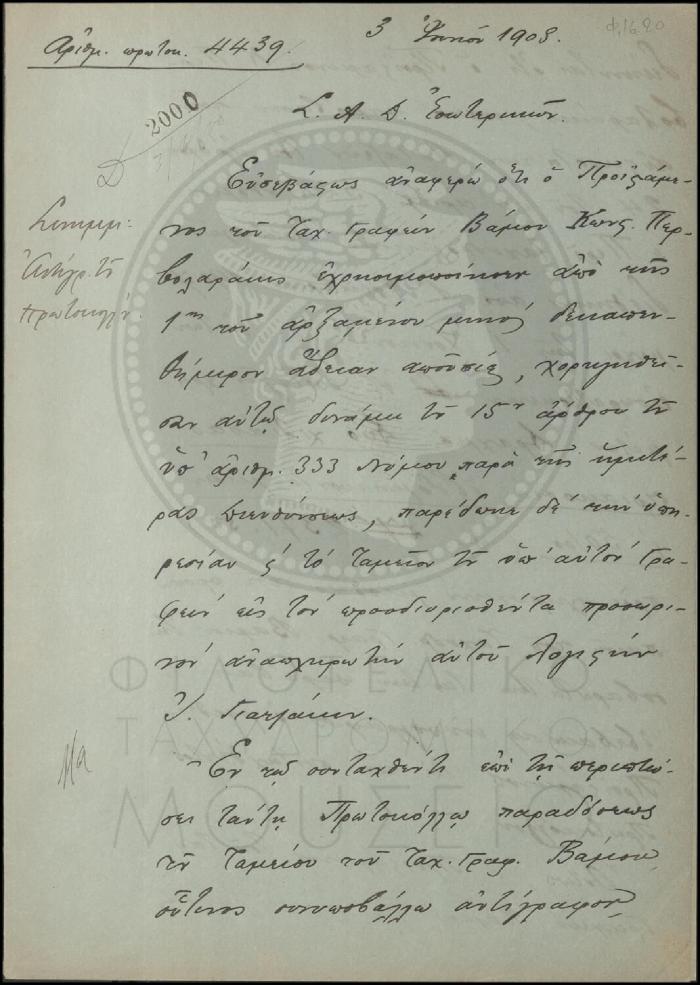 φ.16.20
Ἀριθμ. πρωτοκ. 4439.
3 Ἰουνίου 1903.
2000
Δ
Σ. Α. Δ. Ἐσωτερικῶν.
Συνημμ:
Ἀντίγρ. τοῦ
Πρωτοκόλλου.
Εὐσεβάστως ἀναφέρω ὅτι ὁ Προϊστάμε-
νος τοῦ Ταχ. Γραφείου Βάμου Κωνς. Περ-
βολαράκης ἐχρησιμοποίησεν ἀπὸ τῆς
1ης τοῦ ἀρξαμένου μηνὸς δεκαπεν-
θήμερον ἄδειαν ἀπουσίας, χορηγηθεῖ-
σαν αὐτῷ δυνάμει τοῦ 15ου ἄρθρου τοῦ
ὑπ' ἀριθμ. 333 Νόμου παρὰ τῆς ἡμετέ-
ρας Διευθύνσεως, παρέδωκε δὲ τὴν ὑπη-
ρεσίαν ϛ τὸ ταμεῖον τοῦ ὑπ' αὐτὸν Γρα-
φείου εἰς τὸν προσδιορισθέντα προσωρι-
νὸν ἀναπληρωτὴν αὐτοῦ Λογιστὴν
Ἰ. Γιατζάκην.
Ἐν τῷ συνταχθέντι ἐπὶ τῇ περιπτώ-
σει ταύτῃ Πρωτοκόλλῳ παραδόσεως
τοῦ Ταμείου τοῦ Ταχ. Γραφ. Βάμου,
οὗτινος συνυποβάλλω ἀντίγραφον,
ΦΙΛΟΤΕΛΙΚΟ
ΤΑΧΥΔΡΟΜΙΚΟ
ΜΟΥΣΕΙΟ